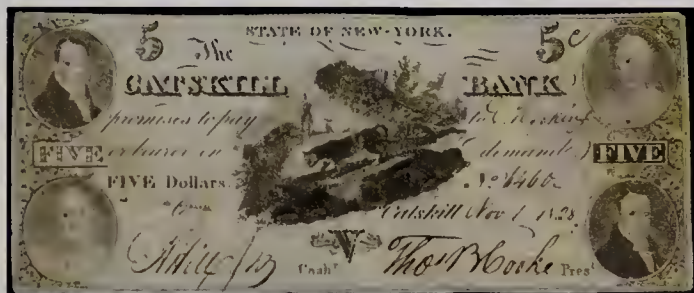 STATE OF NEW-YORK.
5 The 5
CATSKILL BANK
promises to pay
FIVE or bearer on demand FIVE
FIVE Dollars. No
Catskill Nov 1, 1828
Cashr Thos B Cooke Prest
V